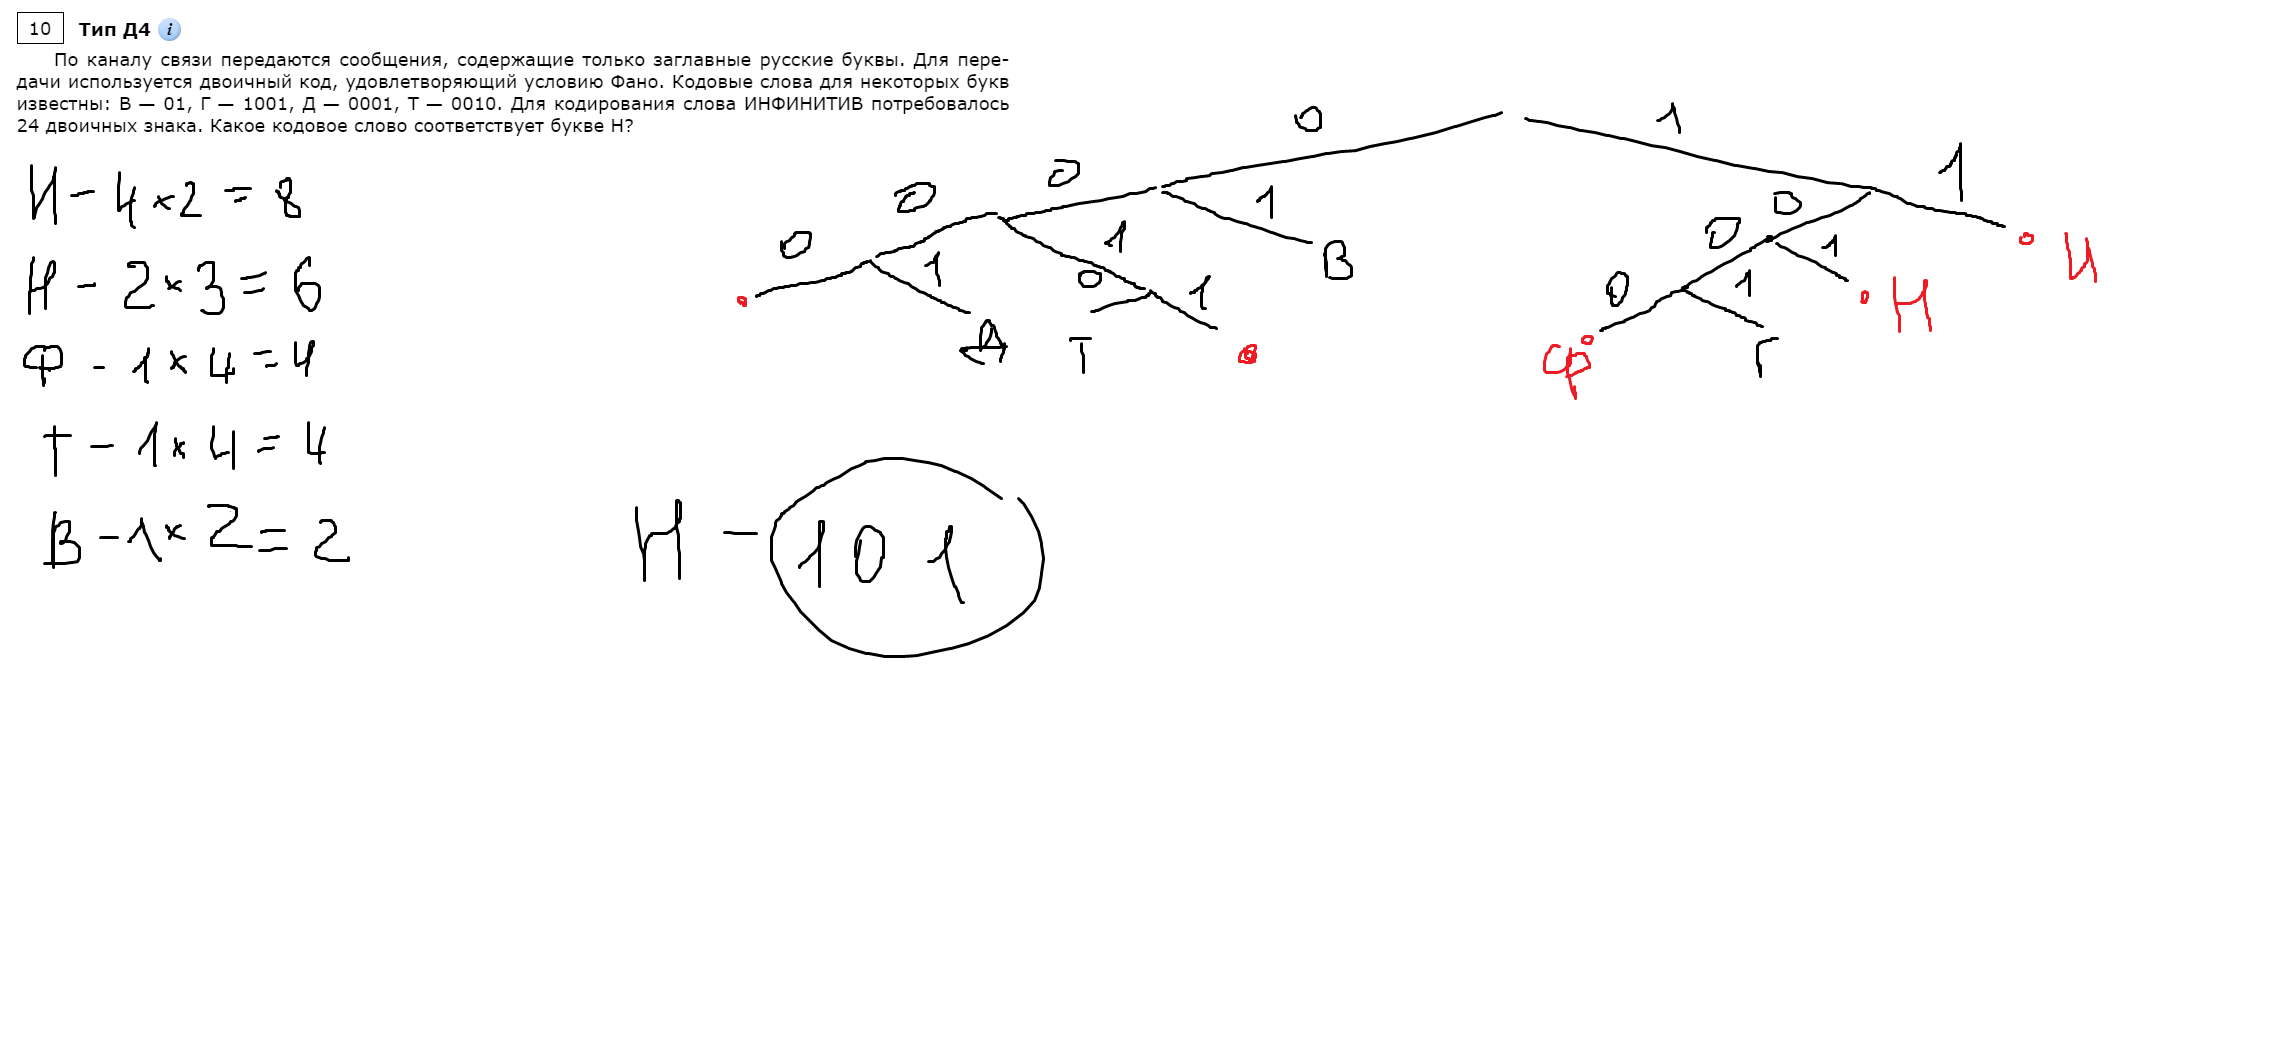 10 Тип Д4 i
По каналу связи передаются сообщения, содержащие только заглавные русские буквы. Для пере-
дачи используется двоичный код, удовлетворяющий условию Фано. Кодовые слова для некоторых букв
известны: В — 01, Г — 1001, Д — 0001, Т — 0010. Для кодирования слова ИНФИНИТИВ потребовалось
24 двоичных знака. Какое кодовое слово соответствует букве Н?
И - 4 × 2 = 8
Н - 2 × 3 = 6
Ф - 1 × 4 = 4
Т - 1 × 4 = 4
В - 1 × 2 = 2
0 1
0 1 0 1
0 1 0 1
0 1 0 1 0 1
В И
Н
Д Т Ф Г
Н - 101